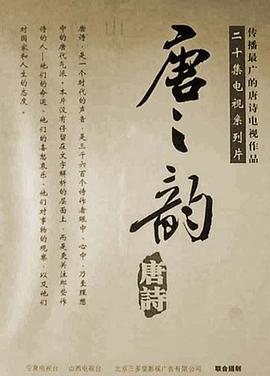 传播最广的唐诗电视作品
二十集电视系列片
唐之韵
唐詩
唐诗,是一个时代的声音,是三千六百个诗作者眼中、心中,乃至理想
中的唐代气派。本片没有停留在文字解析的层面上,而是更关注那些作
诗的人—他们的命运、他们的喜怒哀乐、他们对事物的观察,以及他们
对国家和人生的态度。
宁夏电视台 山西电视台 北京三多堂影视广告有限公司 联合摄制